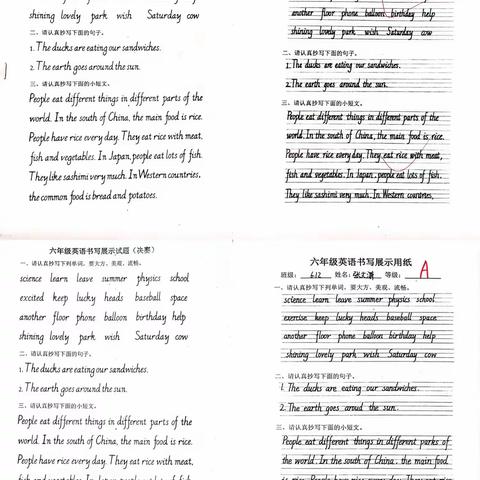 shining lovely park wish Saturday cow
二、请认真抄写下面的句子。
1. The ducks are eating our sandwiches.
2. The earth goes around the sun.
三、请认真抄写下面的小短文。
People eat different things in different parts of the
world. In the south of China, the main food is rice.
People have rice every day. They eat rice with meat,
fish and vegetables. In Japan, people eat lots of fish.
They like sashimi very much. In Western countries,
the common food is bread and potatoes.
another floor phone balloon birthday help
shining lovely park wish Saturday cow
二、请认真抄写下面的句子。
1. The ducks are eating our sandwiches.
2. The earth goes around the sun.
三、请认真抄写下面的小短文。
People eat different things in different parts of the
world. In the south of China, the main food is rice.
People have rice every day. They eat rice with meat,
fish and vegetables. In Japan, people eat lots of fish.
They like sashimi very much. In Western countries,
六年级英语书写展示试题(决赛)
一、请认真抄写下列单词，要大方、美观、流畅。
science learn leave summer physics school
excited keep lucky heads baseball space
another floor phone balloon birthday help
shining lovely park wish Saturday cow
二、请认真抄写下面的句子。
1. The ducks are eating our sandwiches.
2. The earth goes around the sun.
三、请认真抄写下面的小短文。
People eat different things in different parts of the
world. In the south of China, the main food is rice.
People have rice every day. They eat rice with meat,
fish and vegetables. In Japan, people eat lots of fish.
六年级英语书写展示用纸
班级: 612 姓名: 等级: A
一、请认真抄写下列单词，要大方、美观、流畅。
science learn leave summer physics school
exercise keep lucky heads baseball space
another floor phone balloon birthday help
shining lovely park wish Saturday cow
二、请认真抄写下面的句子。
1. The ducks are eating our sandwiches.
2. The earth goes aroud the sun.
三、请认真抄写下面的小短文。
People eat different things in different parks of
the world. In the south of China, the main food is
rice. People have rice every day. They eat rice